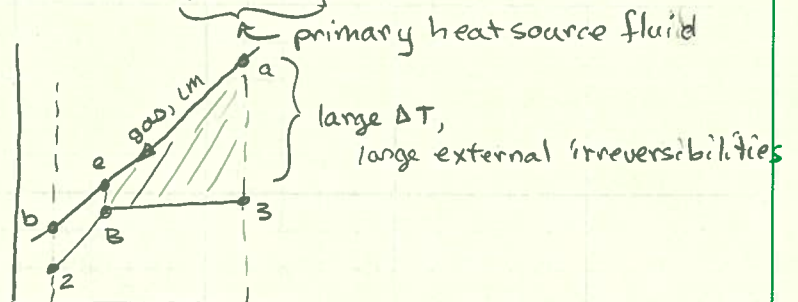 primary heat source fluid
a
gas, LM
large ΔT,
large external irreversibilities
e
b
B
3
2